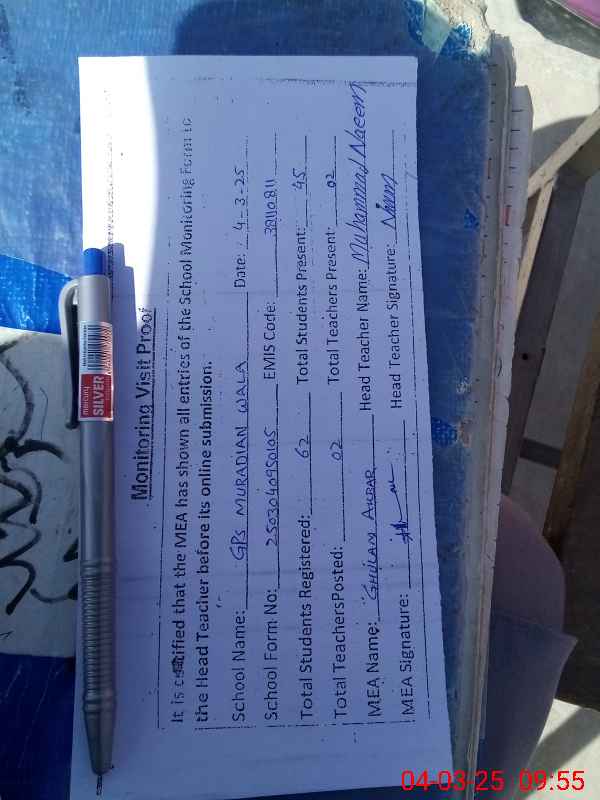 Monitoring Visit Proof
It is certified that the MEA has shown all entries of the School Monitoring Form to
the Head Teacher before its online submission.
School Name: GPS MURADIAN WALA Date: 4-3-25
School Form No: 2503040950105 EMIS Code: 38110811
Total Students Registered: 62 Total Students Present: 45
Total TeachersPosted: 02 Total Teachers Present: 02
MEA Name: GHULAM AKBAR Head Teacher Name: Muhammad Naeem
MEA Signature: Head Teacher Signature:
mercury
SILVER
04-03-25 09:55